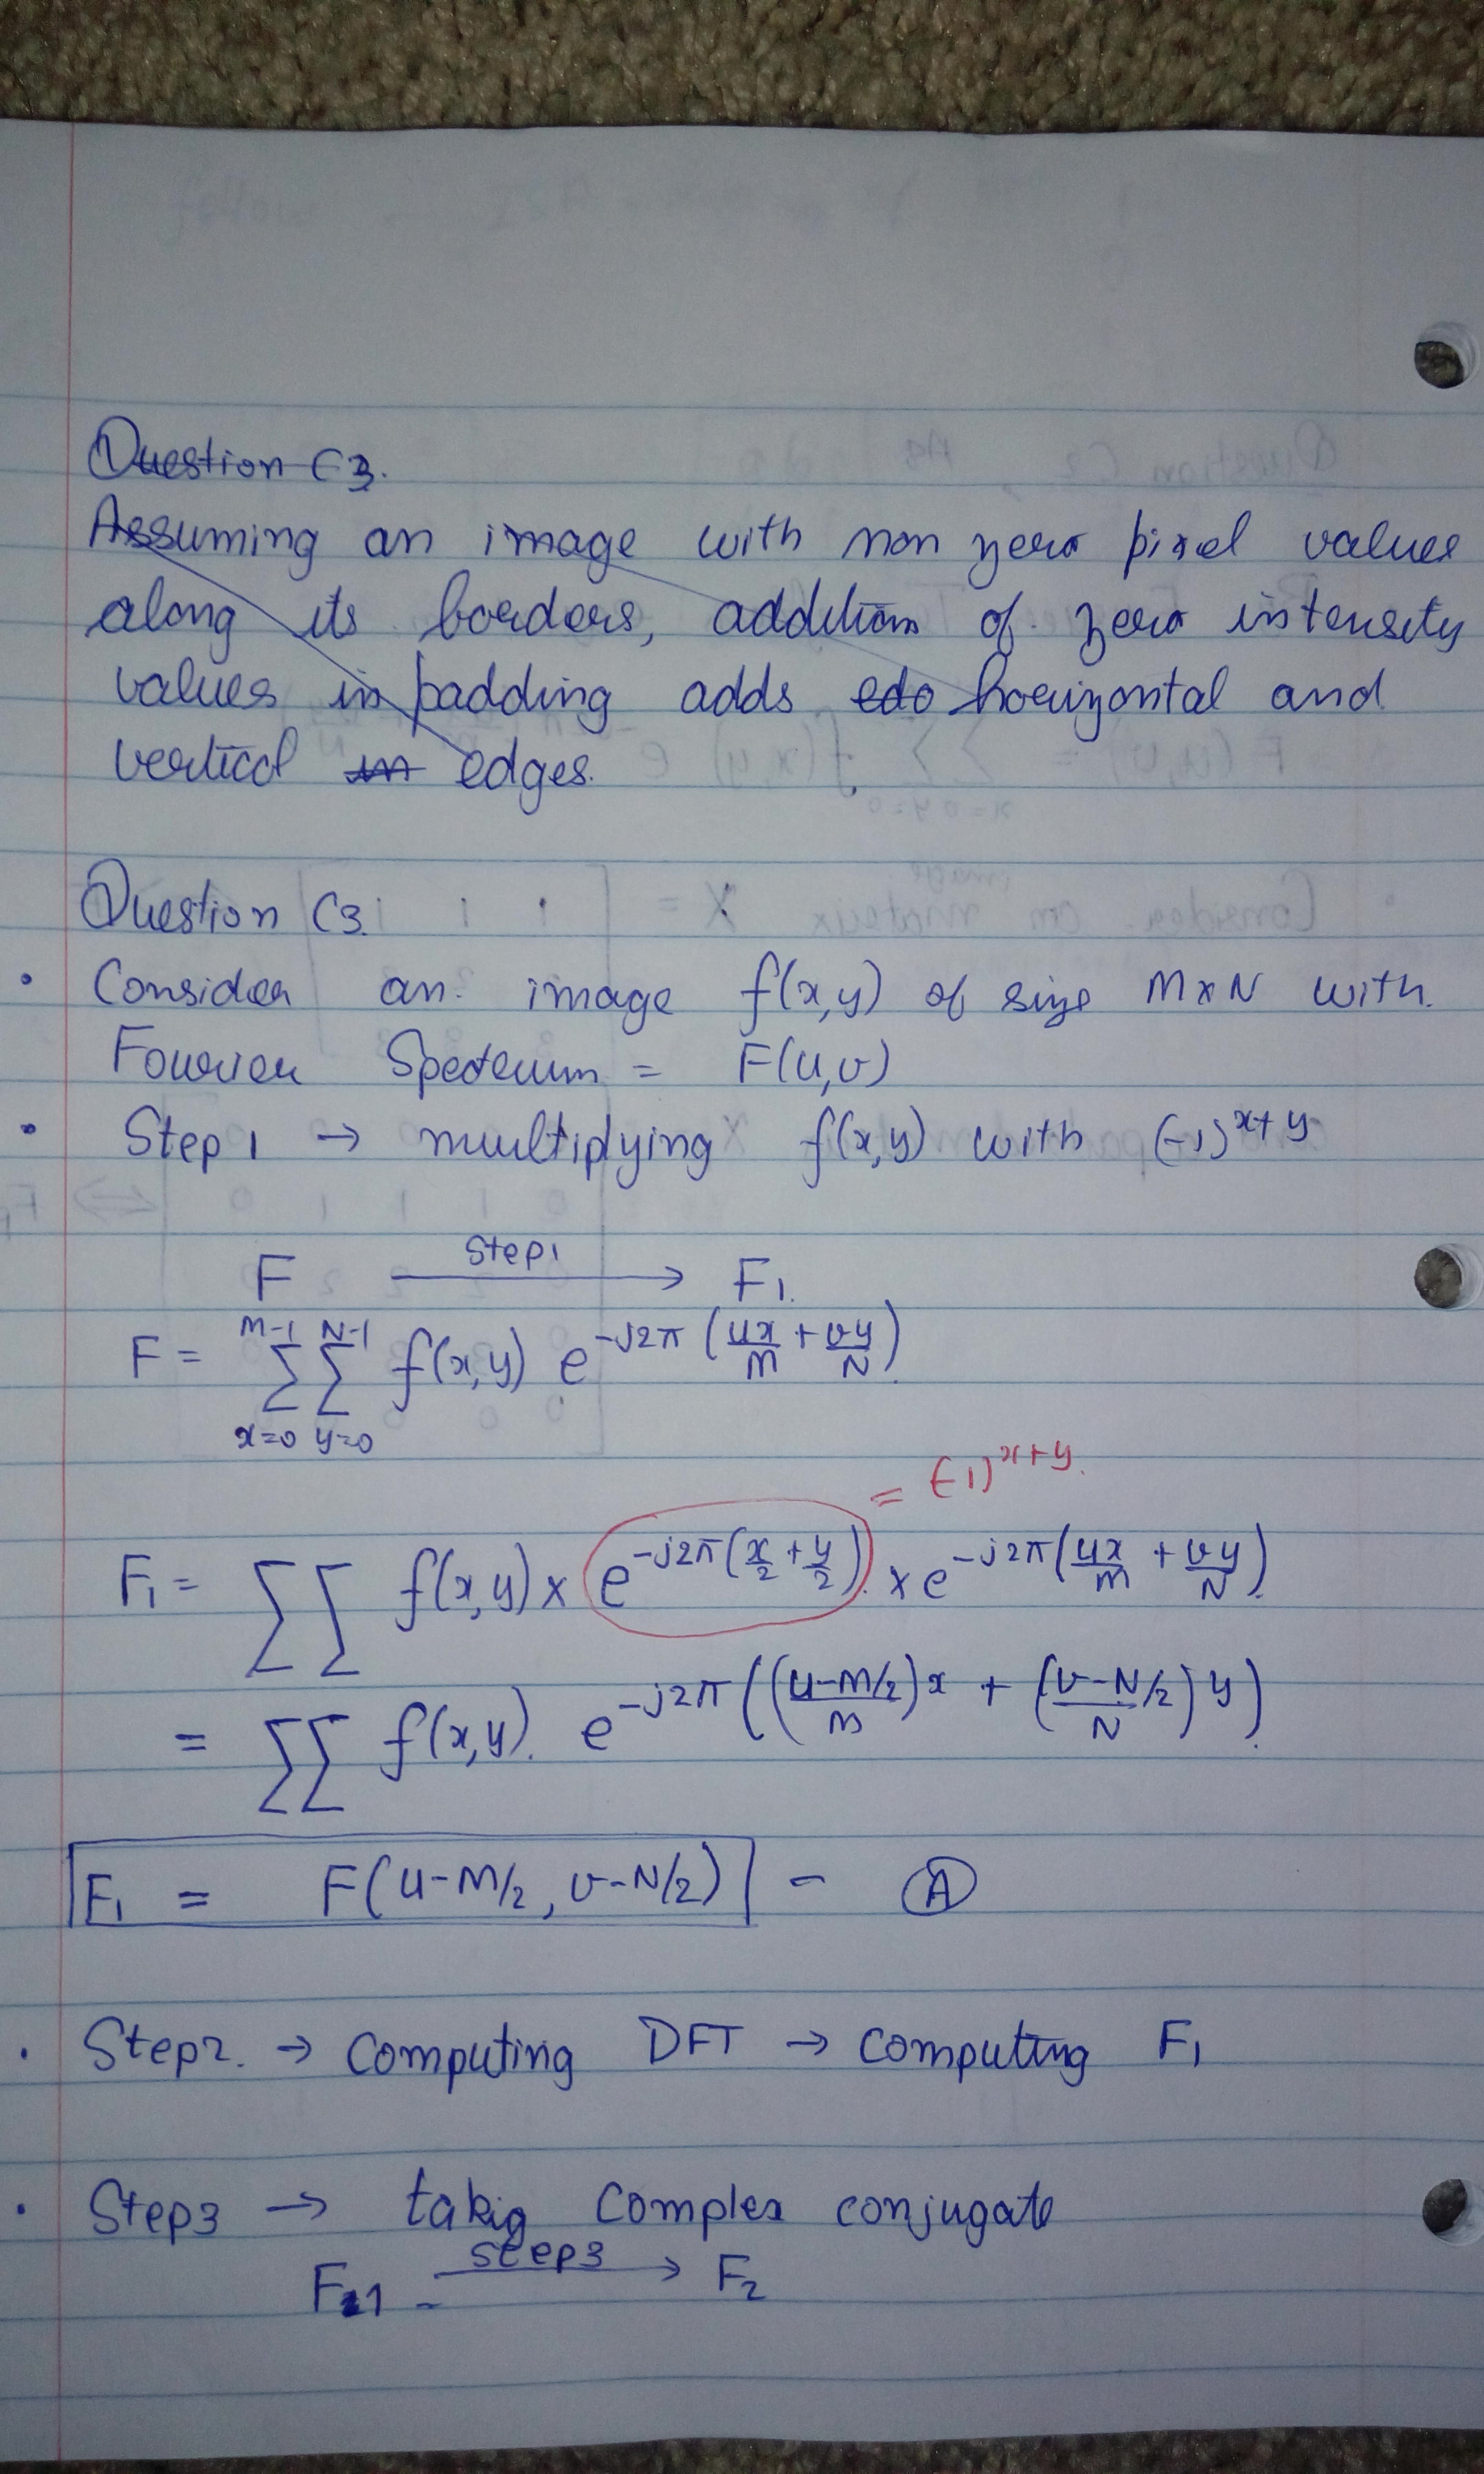 Question C3.
Assuming an image with non zero pixel values
along its borders, addition of zero intensity
values in padding adds edo horizontal and
vertical in edges.
Question C3.
• Consider an image f(x,y) of size M×N with.
Fourier Spectrum = F(u,v)
• Step 1 → multiplying f(x,y) with (-1)^{x+y}
F —Step1→ F₁.
F = Σ_{x=0}^{M-1} Σ_{y=0}^{N-1} f(x,y) e^{-j2π(ux/M + vy/N)}.
= (-1)^{x+y}.
F₁ = ΣΣ f(x,y) × e^{-j2π(x/2 + y/2)} × e^{-j2π(ux/M + vy/N)}.
= ΣΣ f(x,y). e^{-j2π((u-M/2)x/M + (v-N/2)y/N)}.
F₁ = F(u-M/2, v-N/2) - Ⓐ
• Step2. → Computing DFT → Computing F₁
• Step3 → takig Complex conjugate
F1 —Step3→ F₂